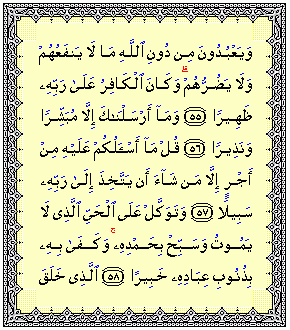 وَيَعْبُدُونَ مِن دُونِ ٱللَّهِ مَا لَا يَنفَعُهُمْ
وَلَا يَضُرُّهُمْ ۗ وَكَانَ ٱلْكَافِرُ عَلَىٰ رَبِّهِۦ
ظَهِيرًا ﴿٥٥﴾ وَمَآ أَرْسَلْنَـٰكَ إِلَّا مُبَشِّرًا
وَنَذِيرًا ﴿٥٦﴾ قُلْ مَآ أَسْـَٔلُكُمْ عَلَيْهِ مِنْ
أَجْرٍ إِلَّا مَن شَآءَ أَن يَتَّخِذَ إِلَىٰ رَبِّهِۦ
سَبِيلًا ﴿٥٧﴾ وَتَوَكَّلْ عَلَى ٱلْحَىِّ ٱلَّذِى لَا
يَمُوتُ وَسَبِّحْ بِحَمْدِهِۦ ۚ وَكَفَىٰ بِهِۦ
بِذُنُوبِ عِبَادِهِۦ خَبِيرًا ﴿٥٨﴾ ٱلَّذِى خَلَقَ